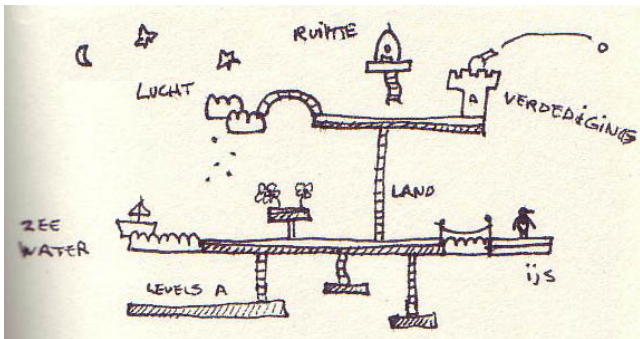 RUIMTE
LUCHT
VERDEDIGING
LAND
ZEE
WATER
ijs
LEVELS A